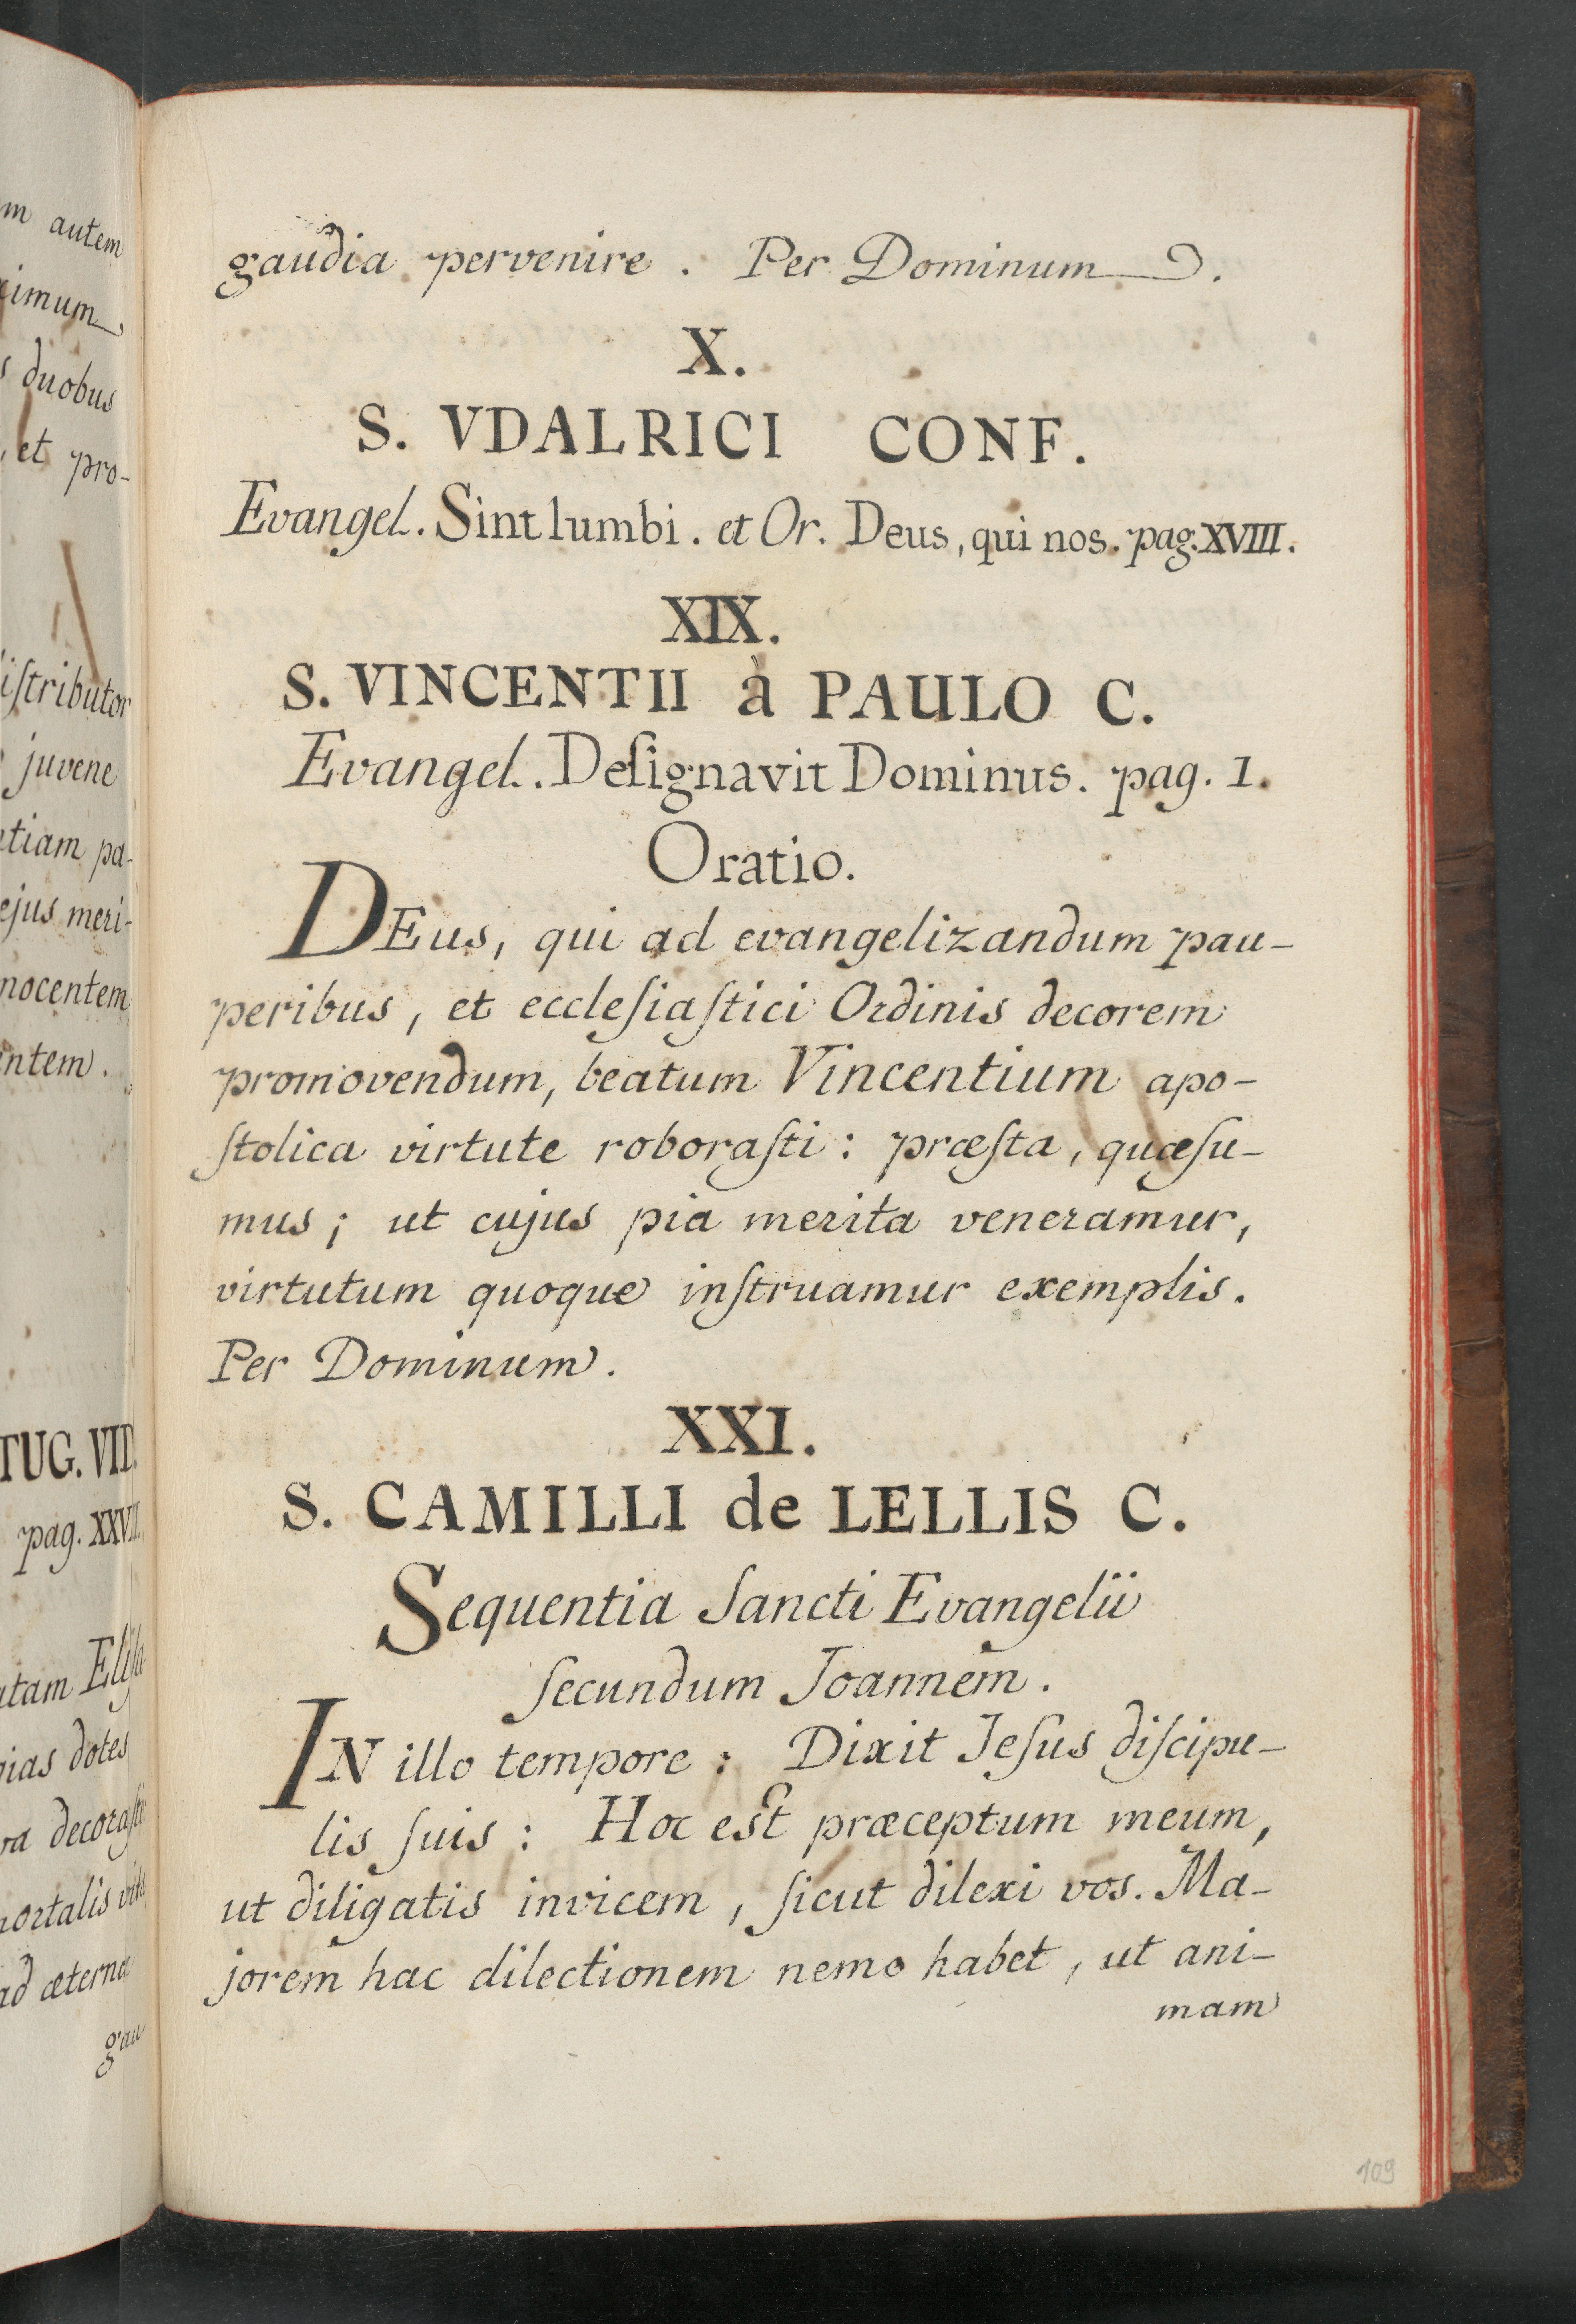 m autem
ximum
s duobus
, et pro-
istributor
juvene
tiam pa-
ejus meri-
nocentem
ntem.
TUG. VID.
pag. XXVII.
atam Elisa
dotes
decorasti
mortalis
ad æterna
gau-
gaudia pervenire. Per Dominum.
X.
S. VDALRICI CONF.
Evangel. Sint lumbi. et Or. Deus, qui nos. pag. XVIII.
XIX.
S. VINCENTII à PAULO C.
Evangel. Deſignavit Dominus. pag. I.
Oratio.
DEus, qui ad evangelizandum pau-
peribus, et eccleſiaſtici Ordinis decorem
promovendum, beatum Vincentium apo-
ſtolica virtute roboraſti: præſta, quæſu-
mus; ut cujus pia merita veneramur,
virtutum quoque inſtruamur exemplis.
Per Dominum.
XXI.
S. CAMILLI de LELLIS C.
Sequentia ſancti Evangelii
ſecundum Joannem.
IN illo tempore: Dixit Jeſus diſcipu-
lis ſuis: Hoc est præceptum meum,
ut diligatis invicem, ſicut dilexi vos. Ma-
jorem hac dilectionem nemo habet, ut ani-
mam
109